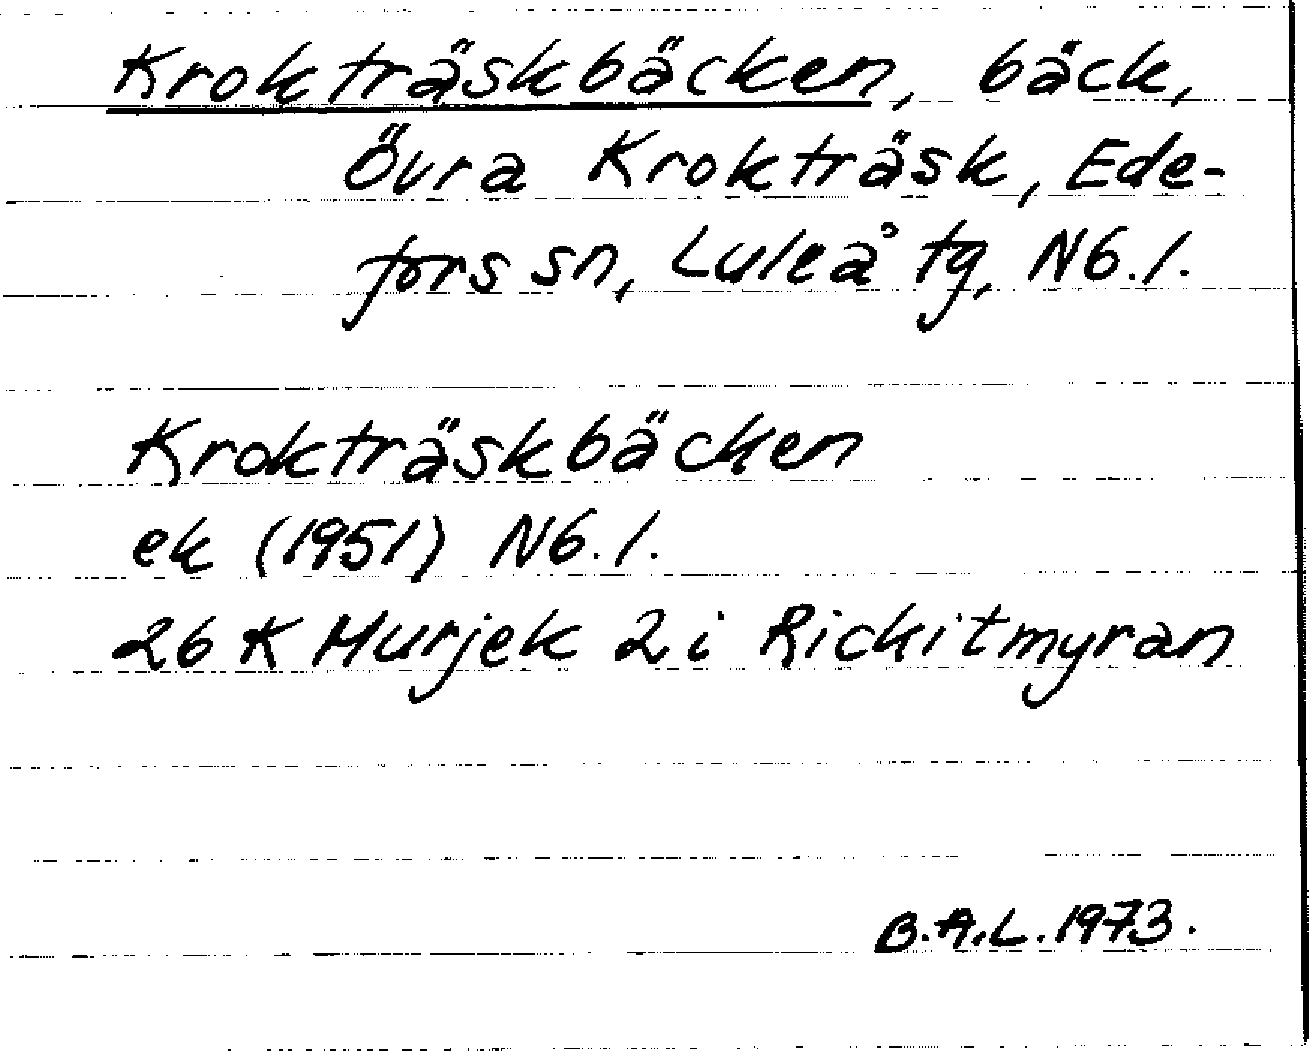 Krokträskbäcken, bäck,
Övra Krokträsk, Ede-
fors sn, Luleå tg, Nb.l.
Krokträskbäcken
ek (1951) Nb.l.
26 K Murjek 2 i Rickitmyran
B.A.L. 1973.